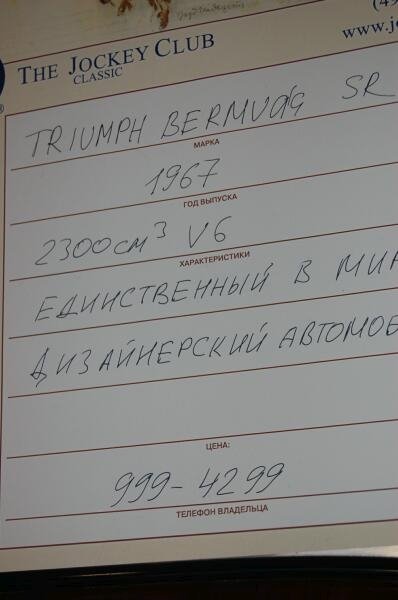 THE JOCKEY CLUB
CLASSIC
www.j
TRIUMPH BERMUDA SR
МАРКА
1967
ГОД ВЫПУСКА
2300 см³ V6
ХАРАКТЕРИСТИКИ
ЕДИНСТВЕННЫЙ В МИР
ДИЗАЙНЕРСКИЙ АВТОМОБ
ЦЕНА:
999-4299
ТЕЛЕФОН ВЛАДЕЛЬЦА